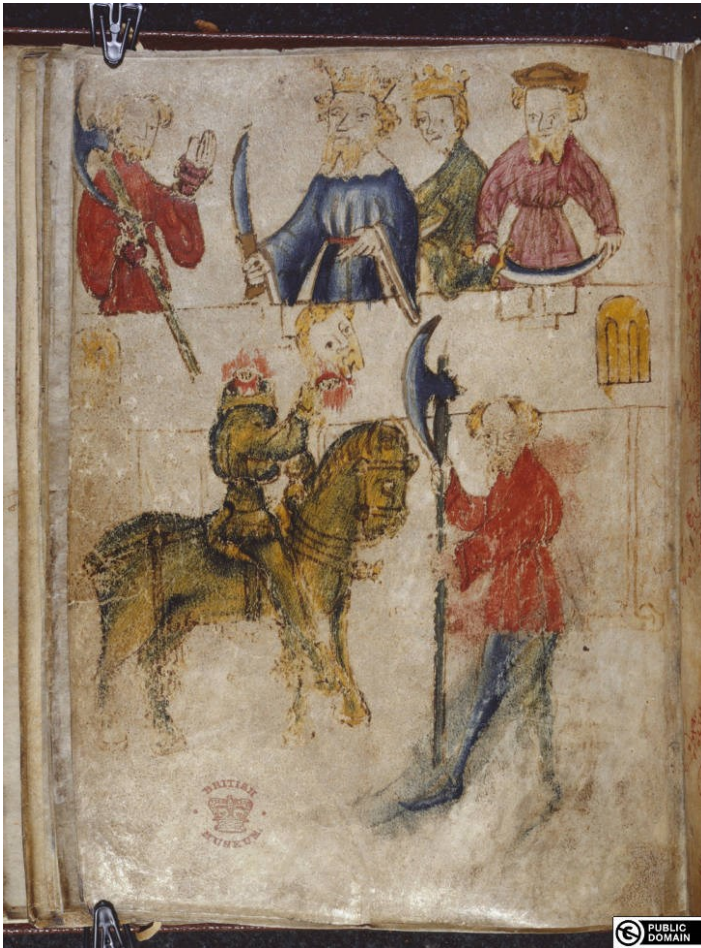 BRITISH
MUSEUM
PUBLIC
DOMAIN